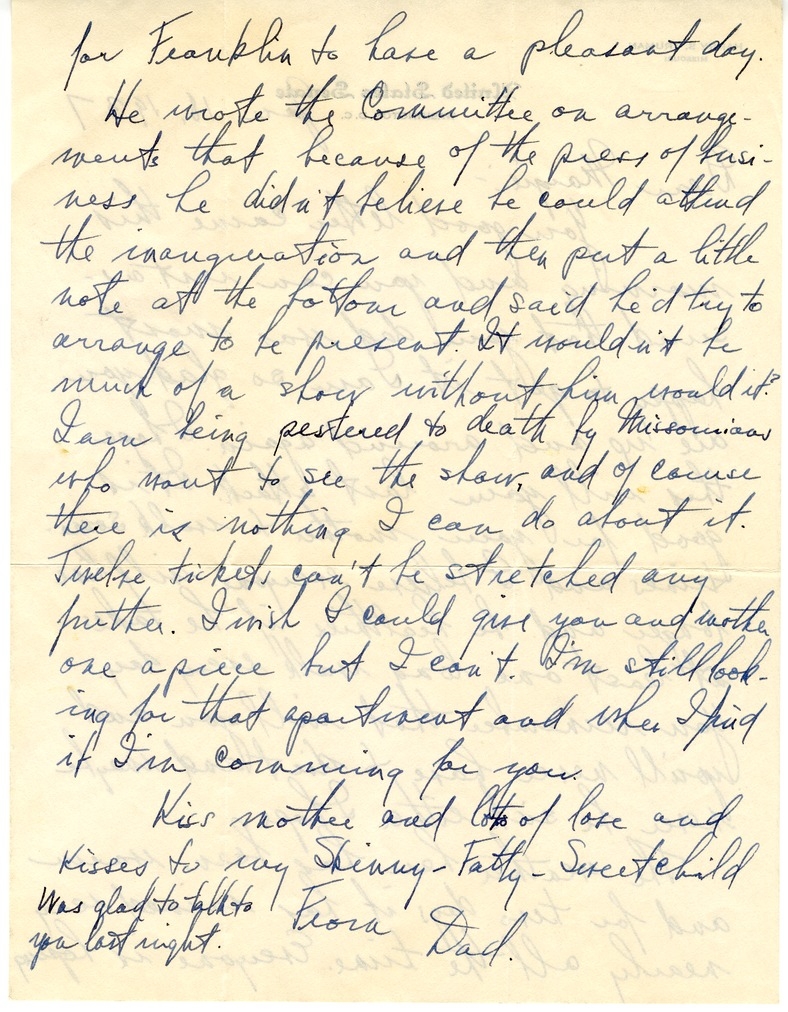 for Franklin to have a pleasant day.
He wrote the Committee on arrange-
ments that because of the press of busi-
ness he didn't believe he could attend
the inauguration and then put a little
note at the bottom and said he'd try to
arrange to be present. It wouldn't be
much of a show without him would it?
I am being pestered to death by Missourians
who want to see the show, and of course
there is nothing I can do about it.
Twelve tickets can't be stretched any
further. I wish I could give you and mother
one apiece but I can't. I'm still look-
ing for that apartment and when I find
it I'm comming for you.
Kiss mother and lots of love and
kisses to my Skinny-Fatty-Sweet child
From
Dad.
Was glad to talk to
you last night.
United States Senate